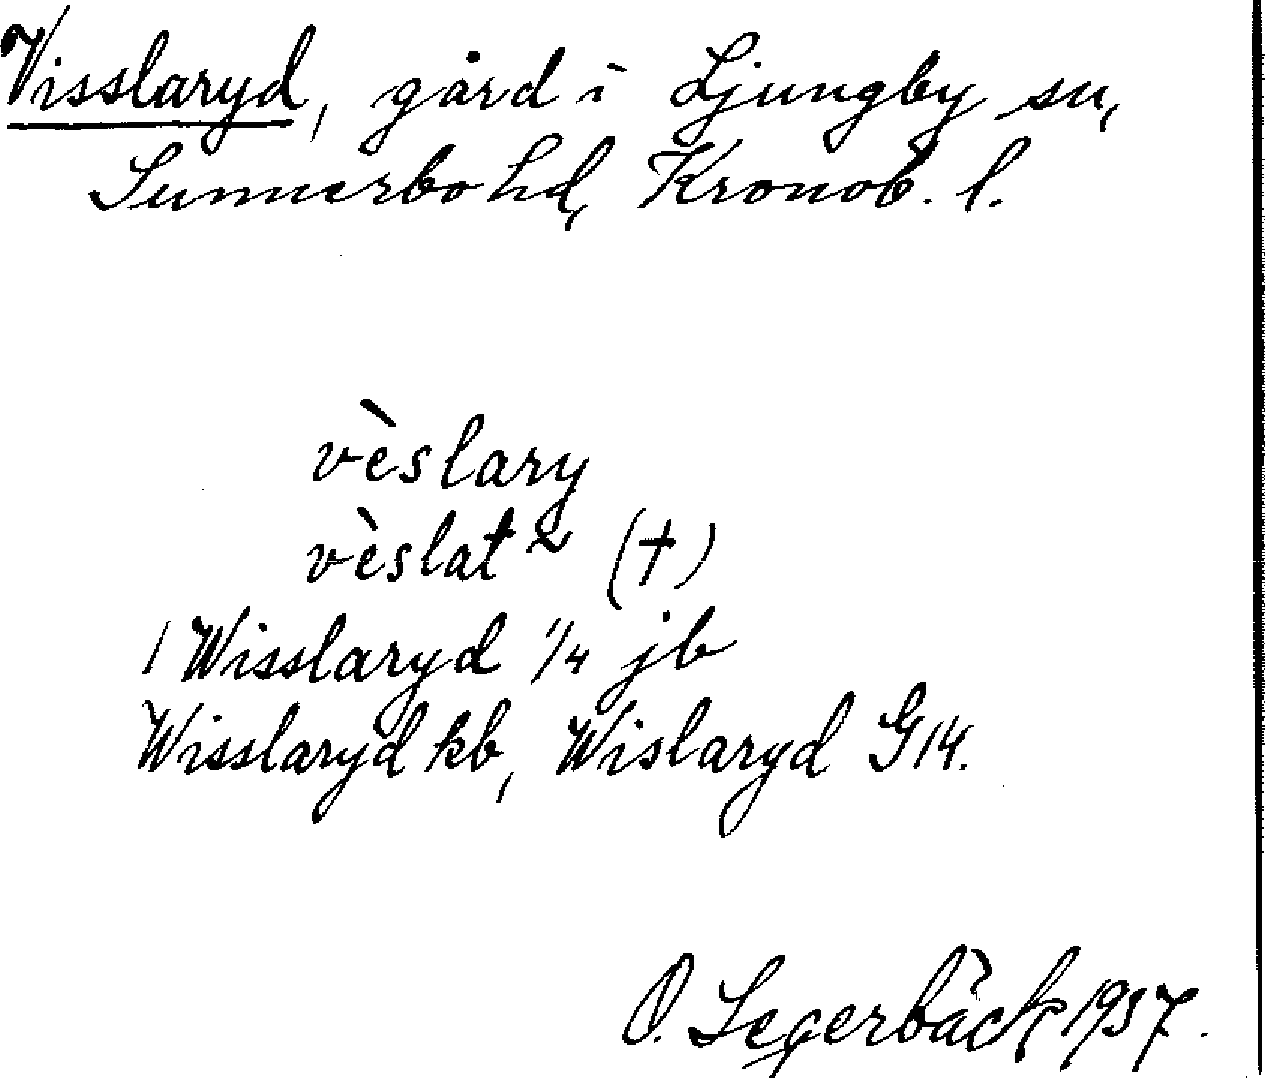 Visslaryd, gård i Ljungby sn,
Sunnerbo hd, Kronob. l.
vèslary
vèslat ~ (†)
1 Wisslaryd 1/4 jb
Wisslaryd kb, Wislaryd G14.
O. Segerbäck 1937.